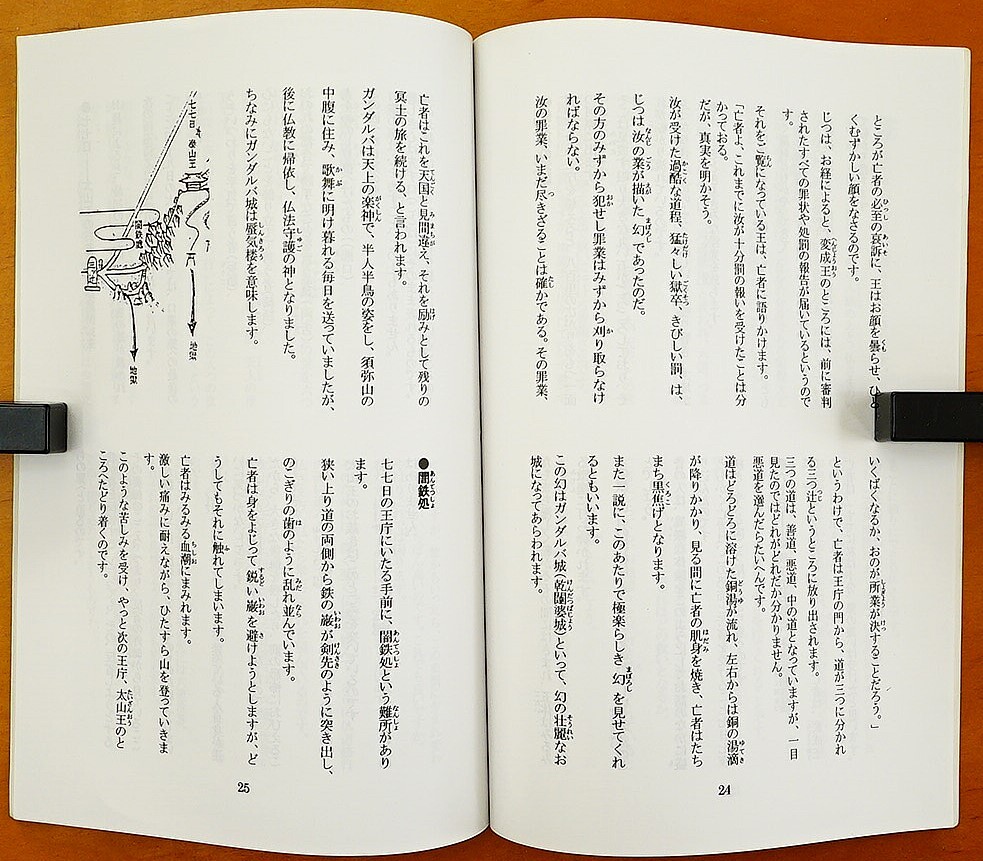 ところが亡者の必至の哀訴に、王はお顔を曇らせ、ひど
くむずかしい顔をなさるのです。
じつは、お経によると、変成王のところには、前に審判
されたすべての罪状や処罰の報告が届いているというので
す。
それをご覧になっている王は、亡者に語りかけます。
「亡者よ、これまでに汝が十分罰の報いを受けたことは分
かっておる。
だが、真実を明かそう。
汝が受けた過酷な道程、猛々しい獄卒、きびしい罰、は、
じつは汝の業が描いた幻であったのだ。
その方のみずから犯せし罪業はみずから刈り取らなけ
ればならない。
汝の罪業、いまだ尽きざることは確かである。その罪業、
いくばくなるか、おのが所業が決することだろう。」
というわけで、亡者は王庁の門から、道が三つに分かれ
る三つ辻というところに放り出されます。
三つの道は、善道、悪道、中の道となっていますが、一目
見たのではどれがどれだか分かりません。
悪道を選んだらたいへんです。
道はどろどろに溶けた銅湯が流れ、左右からは銅の湯滴
が降りかかり、見る間に亡者の肌身を焼き、亡者はたち
まち黒焦げとなります。
また一説に、このあたりで極楽らしき幻を見せてくれ
るともいいます。
この幻はガンダルバ城(乾闥婆城)といって、幻の壮麗なお
城になってあらわれます。
24
亡者はこれを天国と見間違え、それを励みとして残りの
冥土の旅を続ける、と言われます。
ガンダルバは天上の楽神で、半人半鳥の姿をし、須弥山の
中腹に住み、歌舞に明け暮れる毎日を送っていましたが、
後に仏教に帰依し、仏法守護の神となりました。
ちなみにガンダルバ城は蜃気楼を意味します。
七七日 泰山王
闇鉄処
地獄
地獄
●闇鉄処
七七日の王庁にいたる手前に、闇鉄処という難所があり
ます。
狭い上り道の両側から鉄の巌が剣先のように突き出し、
のこぎりの歯のように乱れ並んでいます。
亡者は身をよじって鋭い巌を避けようとしますが、ど
うしてもそれに触れてしまいます。
亡者はみるみる血潮にまみれます。
激しい痛みに耐えながら、ひたすら山を登っていきま
す。
このような苦しみを受け、やっと次の王庁、太山王のと
ころへたどり着くのです。
25